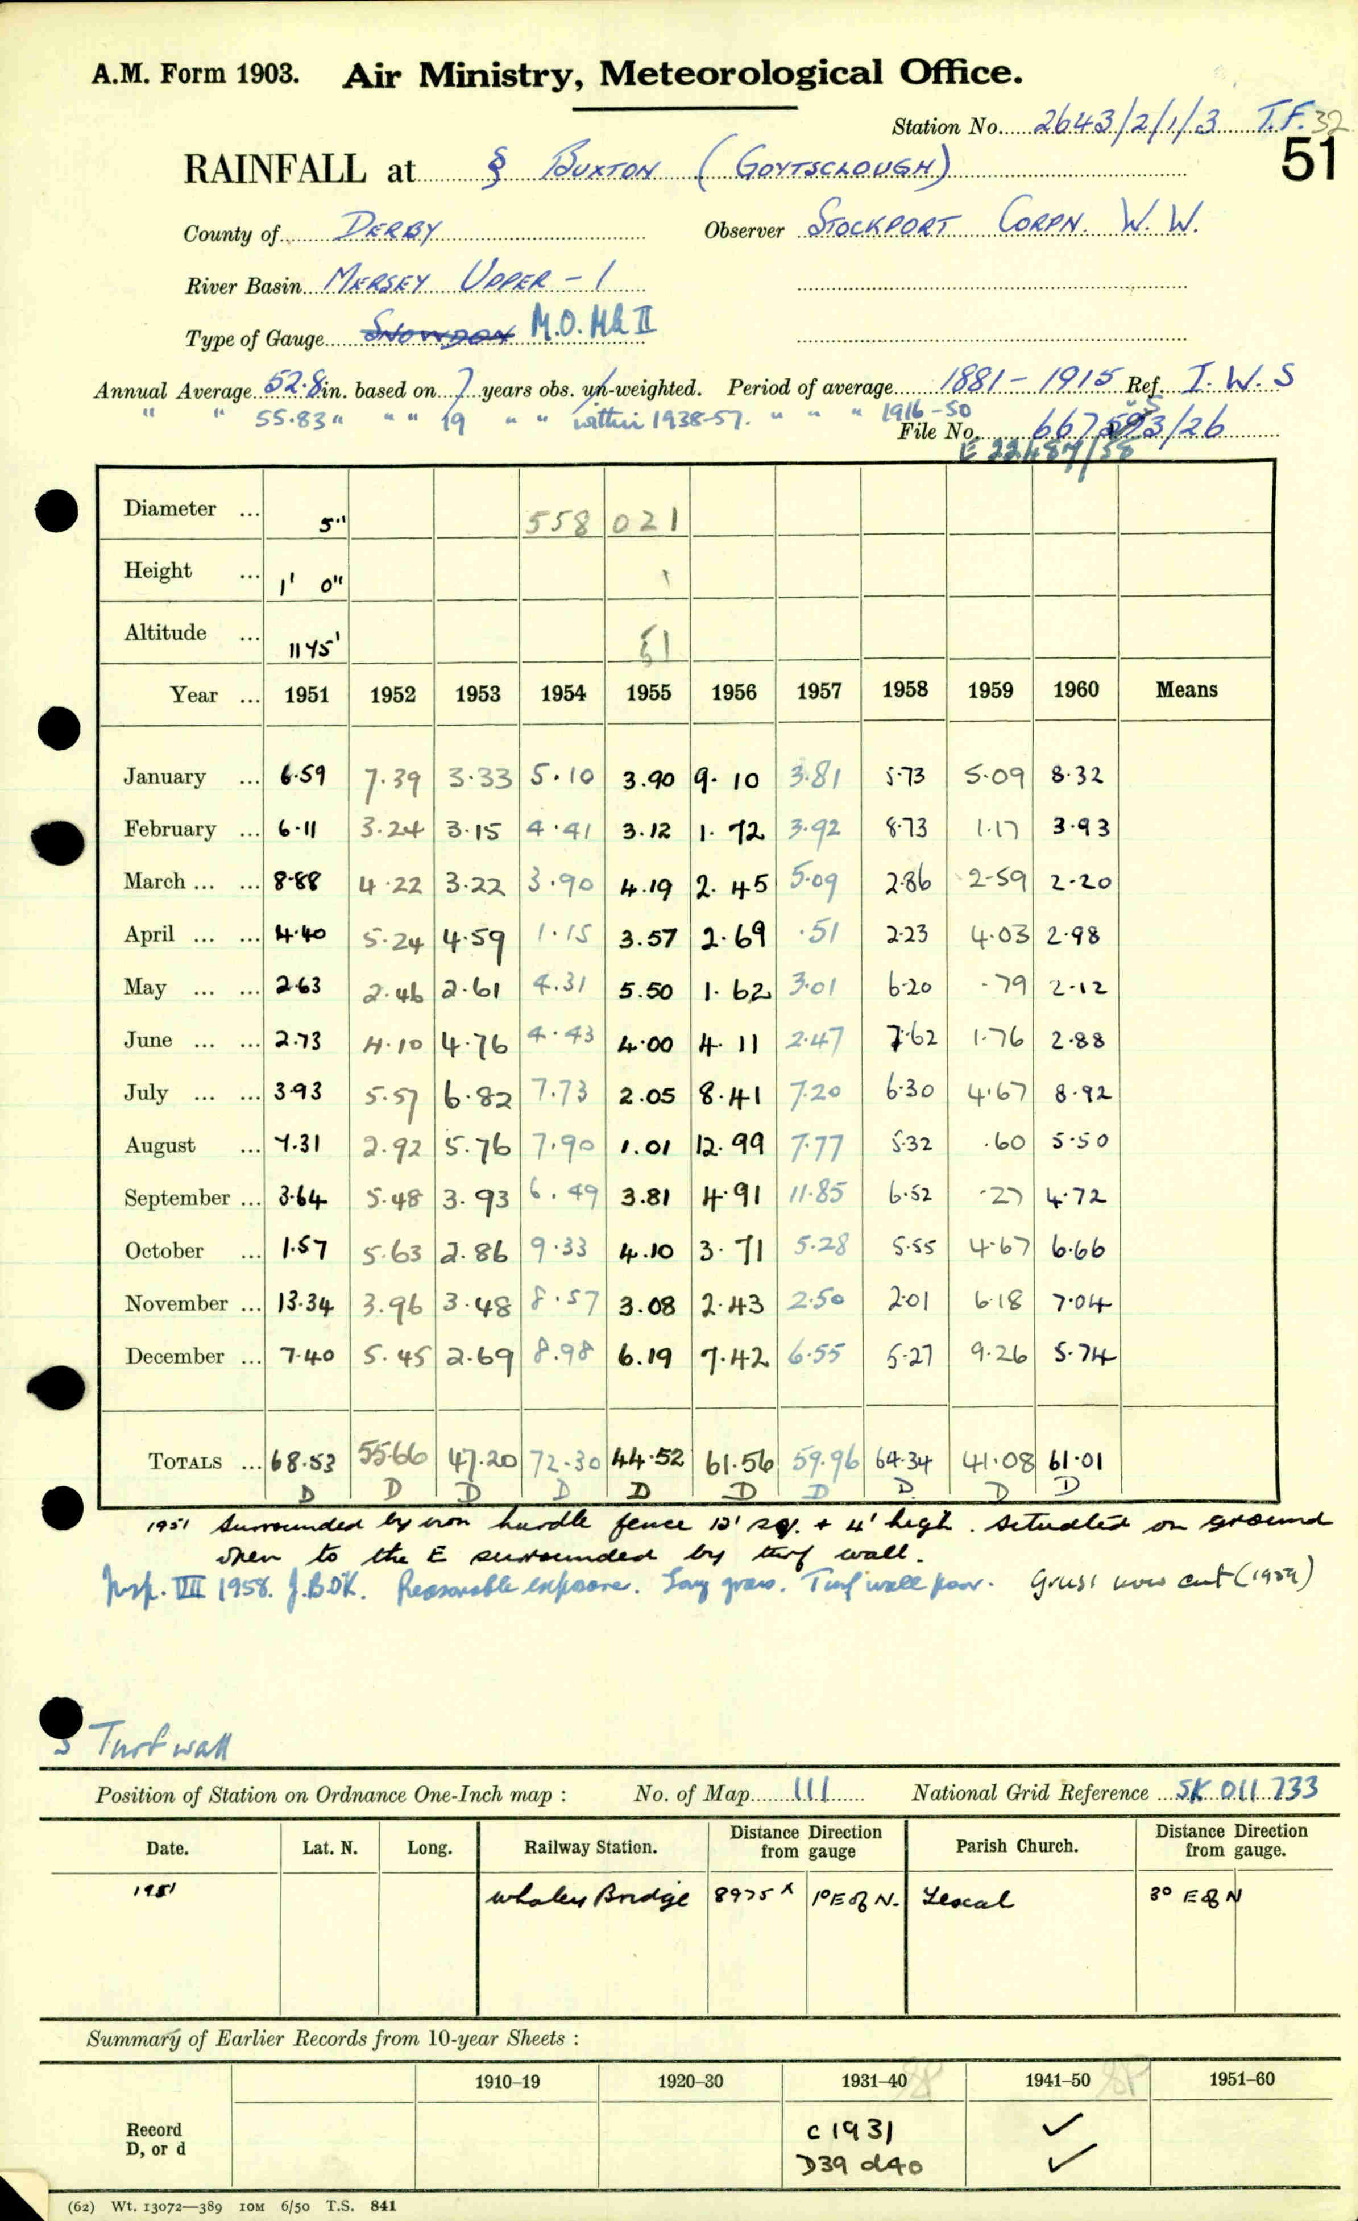 A.M. Form 1903. Air Ministry, Meteorological Office.
Station No. 2643/2/1/3 T.F. 32
RAINFALL at § BUXTON (GOYTSCLOUGH) 51
County of DERBY Observer STOCKPORT CORPN. W.W.
River Basin MERSEY UPPER - 1
Type of Gauge SNOWDON M.O. Mk II
Annual Average 52.8 in. based on 7 years obs. un-weighted. Period of average 1881-1915 Ref. I.W.S
" " 55.83 " " " 19 " " within 1938-57. " " " 1916-50
File No. 667593/26
E 22487/58
Diameter ... 5" 558 021
Height ... 1' 0"
Altitude ... 1145' 51
Year ... 1951 1952 1953 1954 1955 1956 1957 1958 1959 1960 Means
January ... 6.59 7.39 3.33 5.10 3.90 9.10 3.81 5.73 5.09 8.32
February ... 6.11 3.24 3.15 4.41 3.12 1.72 3.92 8.73 1.17 3.93
March ... ... 8.88 4.22 3.22 3.90 4.19 2.45 5.09 2.86 2.59 2.20
April ... ... 4.40 5.24 4.59 1.15 3.57 2.69 .51 2.23 4.03 2.98
May ... ... 2.63 2.46 2.61 4.31 5.50 1.62 3.01 6.20 .79 2.12
June ... ... 2.73 4.10 4.76 4.43 4.00 4.11 2.47 7.62 1.76 2.88
July ... ... 3.93 5.57 6.82 7.73 2.05 8.41 7.20 6.30 4.67 8.92
August ... 7.31 2.92 5.76 7.90 1.01 12.99 7.77 5.32 .60 5.50
September ... 3.64 5.48 3.93 6.49 3.81 4.91 11.85 6.52 .27 4.72
October ... 1.57 5.63 2.86 9.33 4.10 3.71 5.28 5.55 4.67 6.66
November ... 13.34 3.96 3.48 8.57 3.08 2.43 2.50 2.01 6.18 7.04
December ... 7.40 5.45 2.69 8.98 6.19 7.42 6.55 5.27 9.26 5.74
TOTALS ... 68.53 55.66 47.20 72.30 44.52 61.56 59.96 64.34 41.08 61.01
D D D D D D D D D D
1951 Surrounded by iron hurdle fence 12' sq. + 4' high. Situated on ground
open to the E surrounded by turf wall.
Insp. VIII 1958. J.BDK. Reasonable exposure. Long grass. Turf wall poor. Grass now cut (1959)
Turf wall
Position of Station on Ordnance One-Inch map : No. of Map 111 National Grid Reference SK 011 733
Date. Lat. N. Long. Railway Station. Distance Direction from gauge Parish Church. Distance Direction from gauge.
1951 Whaley Bridge 8975 x 1° E of N. 3° E of N
Summary of Earlier Records from 10-year Sheets :
1910–19 1920–30 1931–40 1941–50 1951–60
Record c 1931 ✓
D, or d D39 d40 ✓
(62) Wt. 13072—389 10M 6/50 T.S. 841